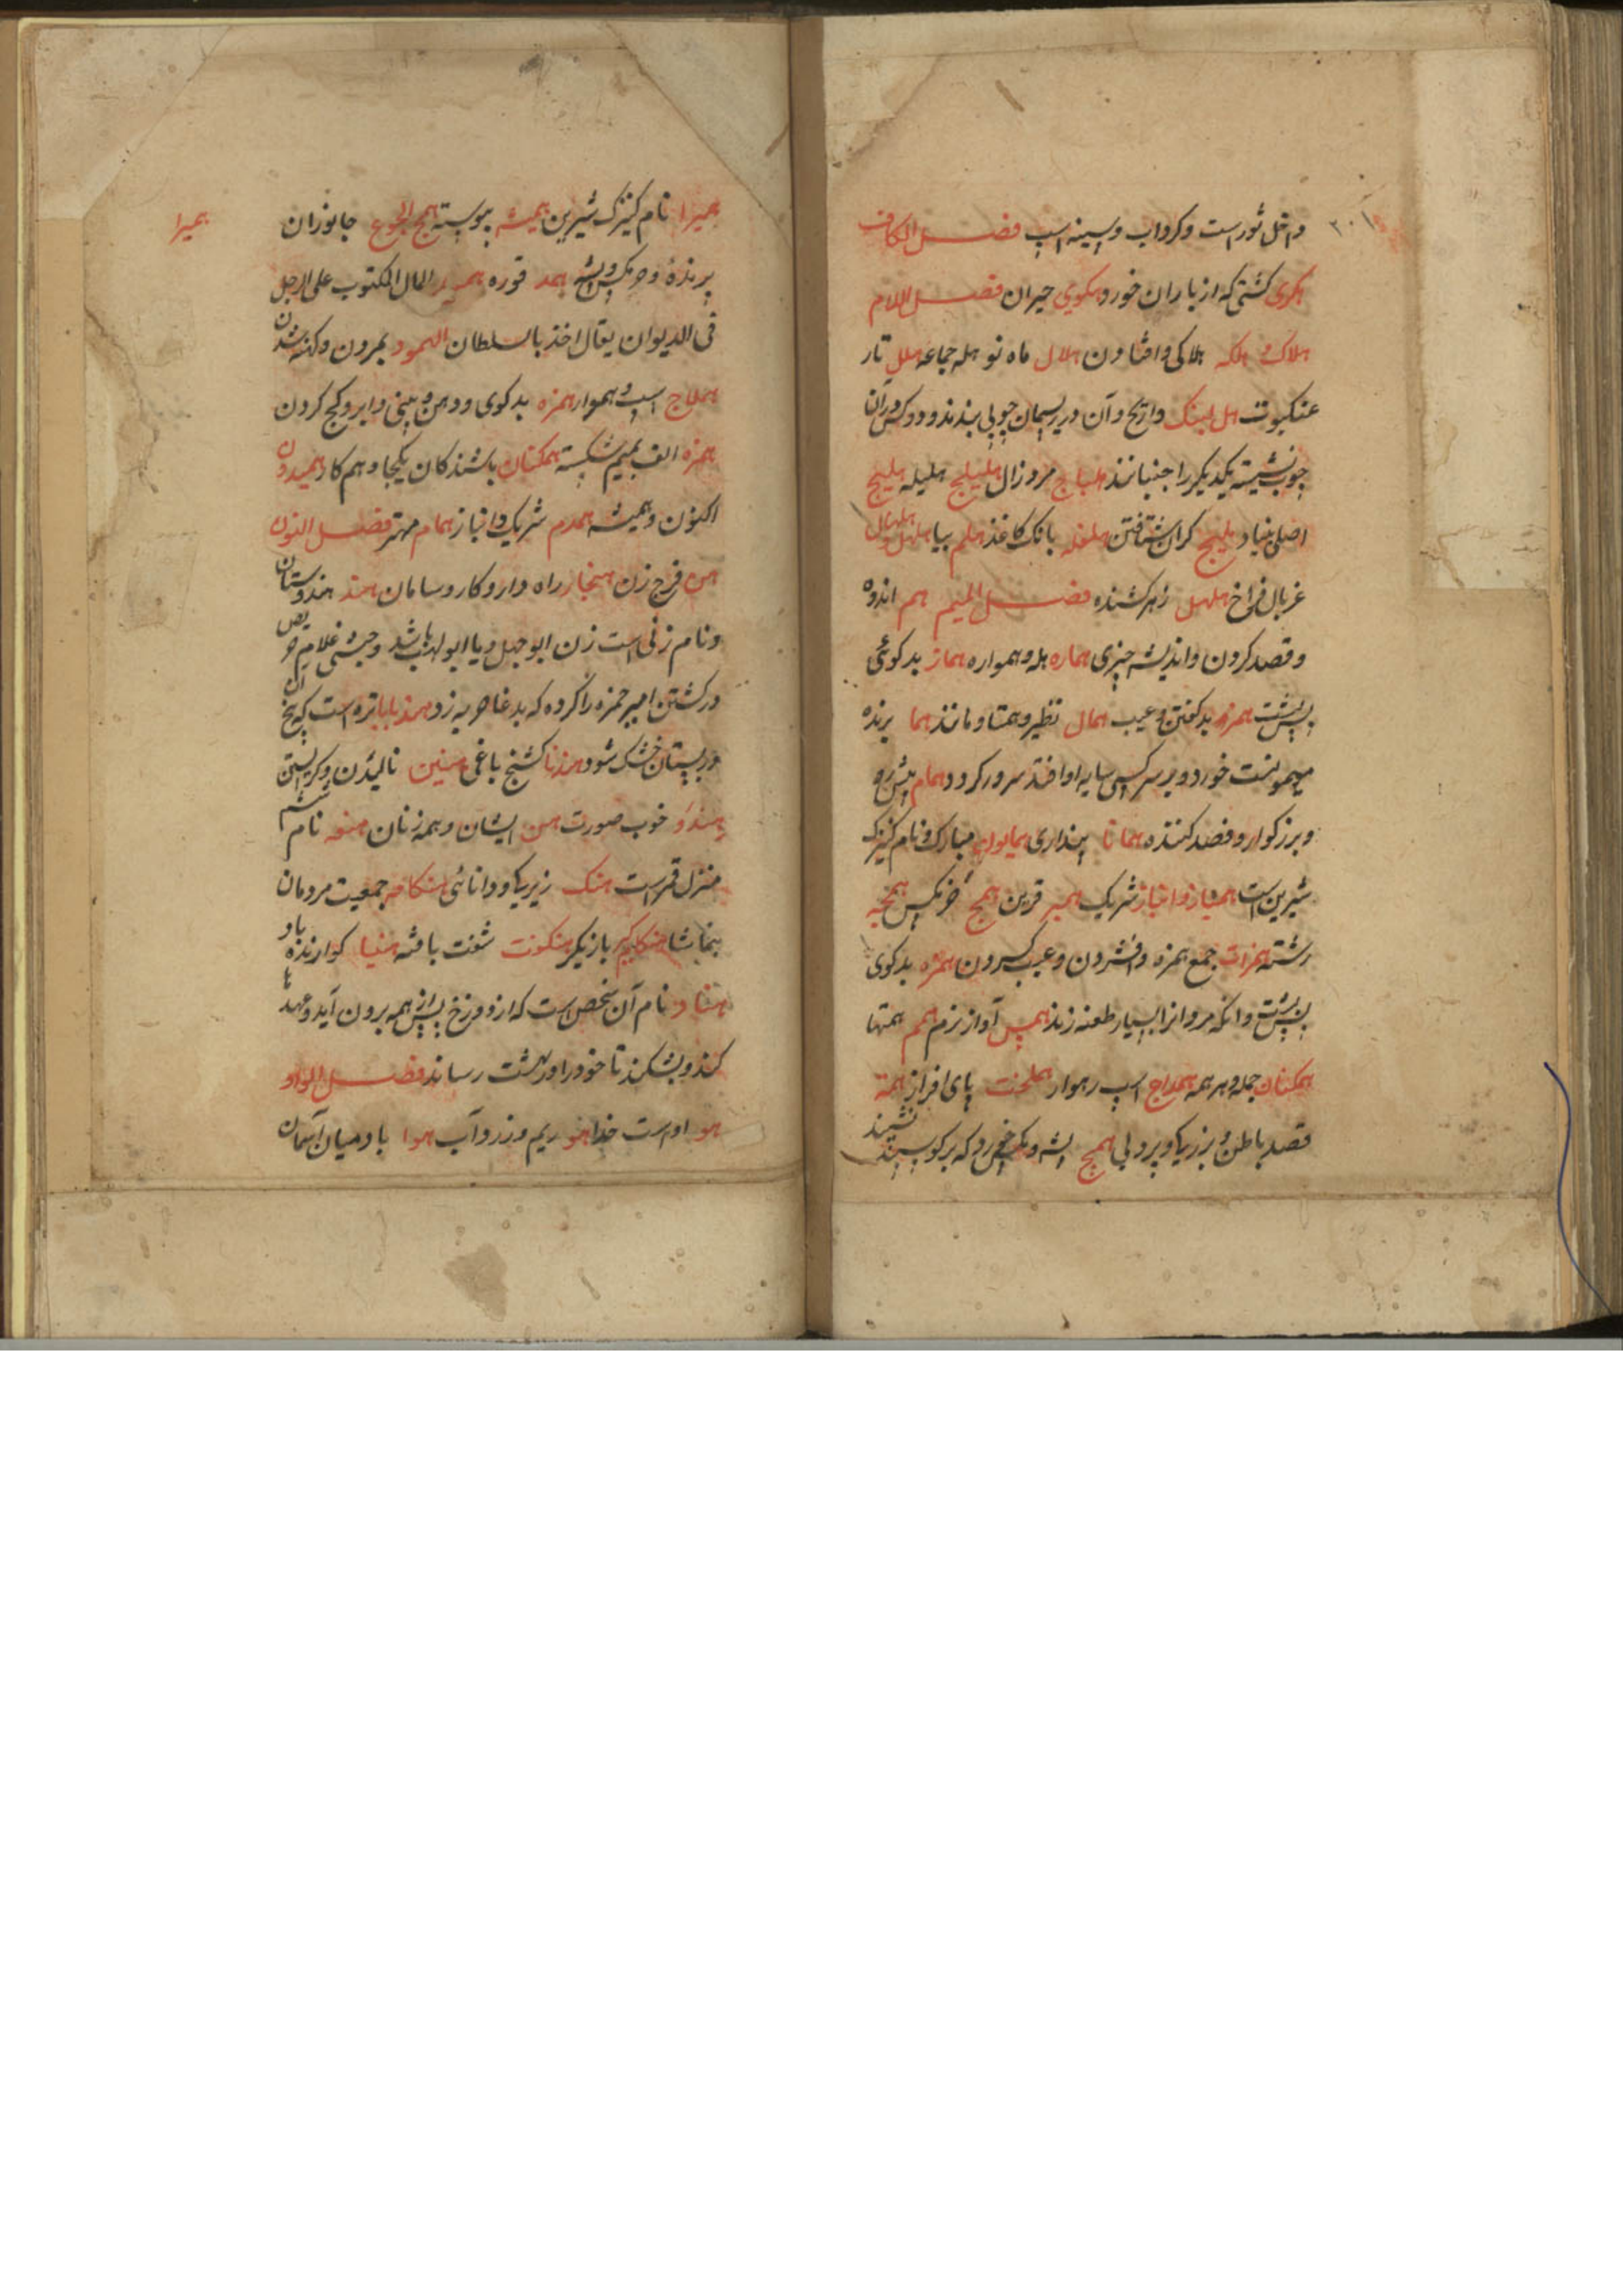 داخل ثور است و کرداب و سینه اسپ فصل الکاف
هکری کشتی که از باران خورد هکوی حیران فصل اللام
هلاک و هلکه هلاکی و افتادن هلال ماه نو هله جماعه هلل تار
عنکبوت هل لبنک وازیح و آن در ریسمان چوبی بندند و دو کس در آن
چوب نشسته یکدیکر را جنبانند هلباج مرد زال هلیلج هلیله هلیج
اصلی بنیاد هلیج کران شتافتن هلغله بانک کاغذ هلم بیا هلهل هلهال
غربال فراخ هلهل زهر کشنده فصل المیم هم اندوه
و قصد کردن و اندیشه چیزی هماره هله و همواره هماز بد کوئی
پس پشت همزه بد کفتن و عیب همال نظیر و همتا و مانند هما پرنده
میمونست خورد و بر سر کسی سایه او افتد سرور کردد همام پیش رو
و بزرکوار و قصد کننده همانا پنداری همایون مبارک و نام کنیزک
شیرین است همباز و انباز شریک همبر قرین همج خرمکس همچه
رشته همزات جمع همزه و افشردن و عیب کردن همزه بد کوی
پس پشت و انکه مردانرا بسیار طعنه زند همس آواز نرم همم همتها
همکنان جمله و هر همه هملاج اسپ رهوار هملخت پای افزار همة
قصد باطن و بزرکی و پردلی همج پشه و مکس خورد که بر کوسپند نشیند
همیرا نام کنیزک شیرین همیشه پیوسته همج الجوع جانوران
پرنده و خرمکس و پشه همد قوره همید المال المکتوب علی الرجل
فی الدیوان یقال اخذ بالسلطان الهمود بمردن و کهنه شدن
هملاج اسپ و هموار همزه بد کوی و دهن و بینی و ابرو کج کردن
همزه الف بمیم شکسته همکنان باشندکان یکجا و هم کار همیدون
اکنون و همیشه همدم شریک و انباز همام مهتر فصل النون
هن فرج زن هنجار راه دار و کار و سامان هند هندوستان
و نام زنی است زن ابوجهل و یا ابولهب باشد و حبشی غلام
در کشتن امیر حمزه را کرده که بد غا حربه زد هندبا باتره است که بیخ آن
در بستان خشک شود هندنا کشنج باغی هنین نالیدن و کریستن
هندو خوب صورت هن ایشان و همه زنان هنعه نام ششم
منزل قمر است هنک زیرکی و دانائی هنکامه جمعیت مردمان
بتماشا هنکامه کیر بازیکر هنکفت شفت بافته هنیا کوارنده باد
هناد نام آن شخص است که از دوزخ پس از همه برون آید و عهد ها
کند و بشکند تا خود را در بهشت رساند فصل الواو
هو او است خدا هو ریم و زرد آب هوا باد میان آسمان
همیرا
۲۰۱